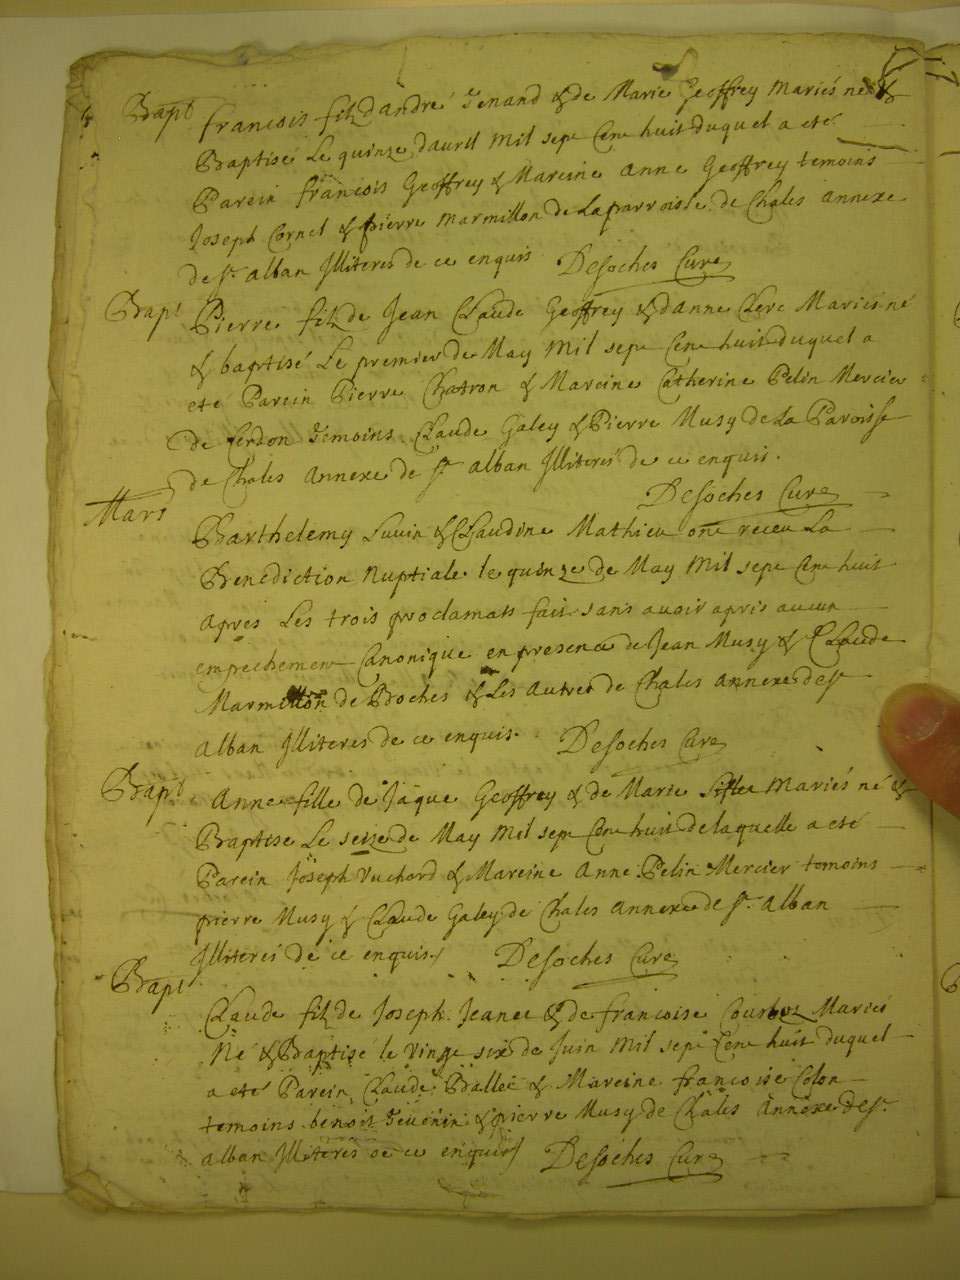 Bapt francois filz dandré Tenand & de Marie Geoffrey Mariés né &
Baptisé Le quinze dauril Mil sept Cent huit duquel a eté
Parein françois Geoffrey & Mareine Anne Geoffrey temoins
Joseph Cornet & pierre Marmillon de La parroisse de Chales annexe
de st. alban Illiterés de ce enquis Desoches Curé
Bapt Pierre filz de Jean Claude Geoffrey & danne Clerc Mariés né
& baptisé Le premier de May Mil sept Cent huit duquel a
eté Parein Pierre Chatron & Mareine Catherine Pelin Mercier
de Cerdon Temoins Claude Galey & Pierre Musy de La Paroisse
de Chales Annexe de st alban Illiterés de ce enquis.
Desoches Curé
Mars Barthelemy & Claudine Mathieu ont receu La
Benediction Nuptiale le quinze de May Mil sept Cent huit
apres Les trois proclamats fait sans auoir apris aucun
empechement Canonique en presence de Jean Musy & Claude
Marmillon de Boches & Les Autres de Chales annexe de st
alban Illiterés de ce enquis. Desoches Curé
Bapt Anne fille de Jaque Geoffrey & de Marie Mariés né &
Baptise Le seize de May Mil sept Cent huit de laquelle a eté
Parein Joseph Vuchard & Mareine Anne Pelin Mercier temoins
pierre Musy & Claude Galey de Chales annexe de st. alban
Illiterés de ce enquis Desoches Curé
Bapt
Claude filz de Joseph Jeanet & de francoise Mariés
Né & Baptisé le Vingt six de Juin Mil sept Cent huit duquel
a eté Parein Claude Ballet & Mareine francoise Colon
temoins benoit Teuenin & pierre Musy de Châles Annexe de st.
alban Illiterés de ce enquis Desoches Curé